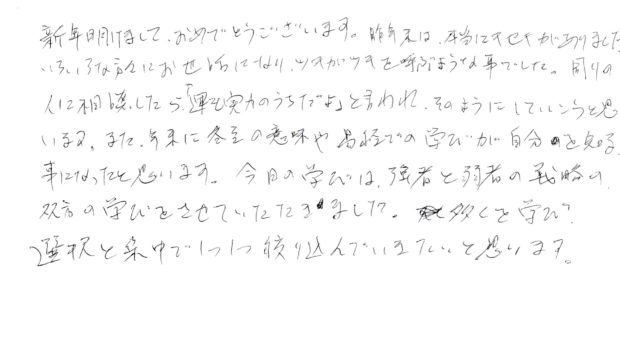 新年明けまして、おめでとうございます。昨年末は、本当にキセキがありました
いろいろな方々にお世話になり、ツキがツキを呼ぶような事でした。周りの
人に相談したら、「運も実力のうちだよ」と言われ、そのようにしていこうと思
います。また、年末に冬至の意味や易経での学びが自分を見る
事になったと思います。今日の学びは、強者と弱者の戦略の
双方の学びをさせていただきました。多くを学び、
選択と集中で1つ1つ絞り込んでいきたいと思います。